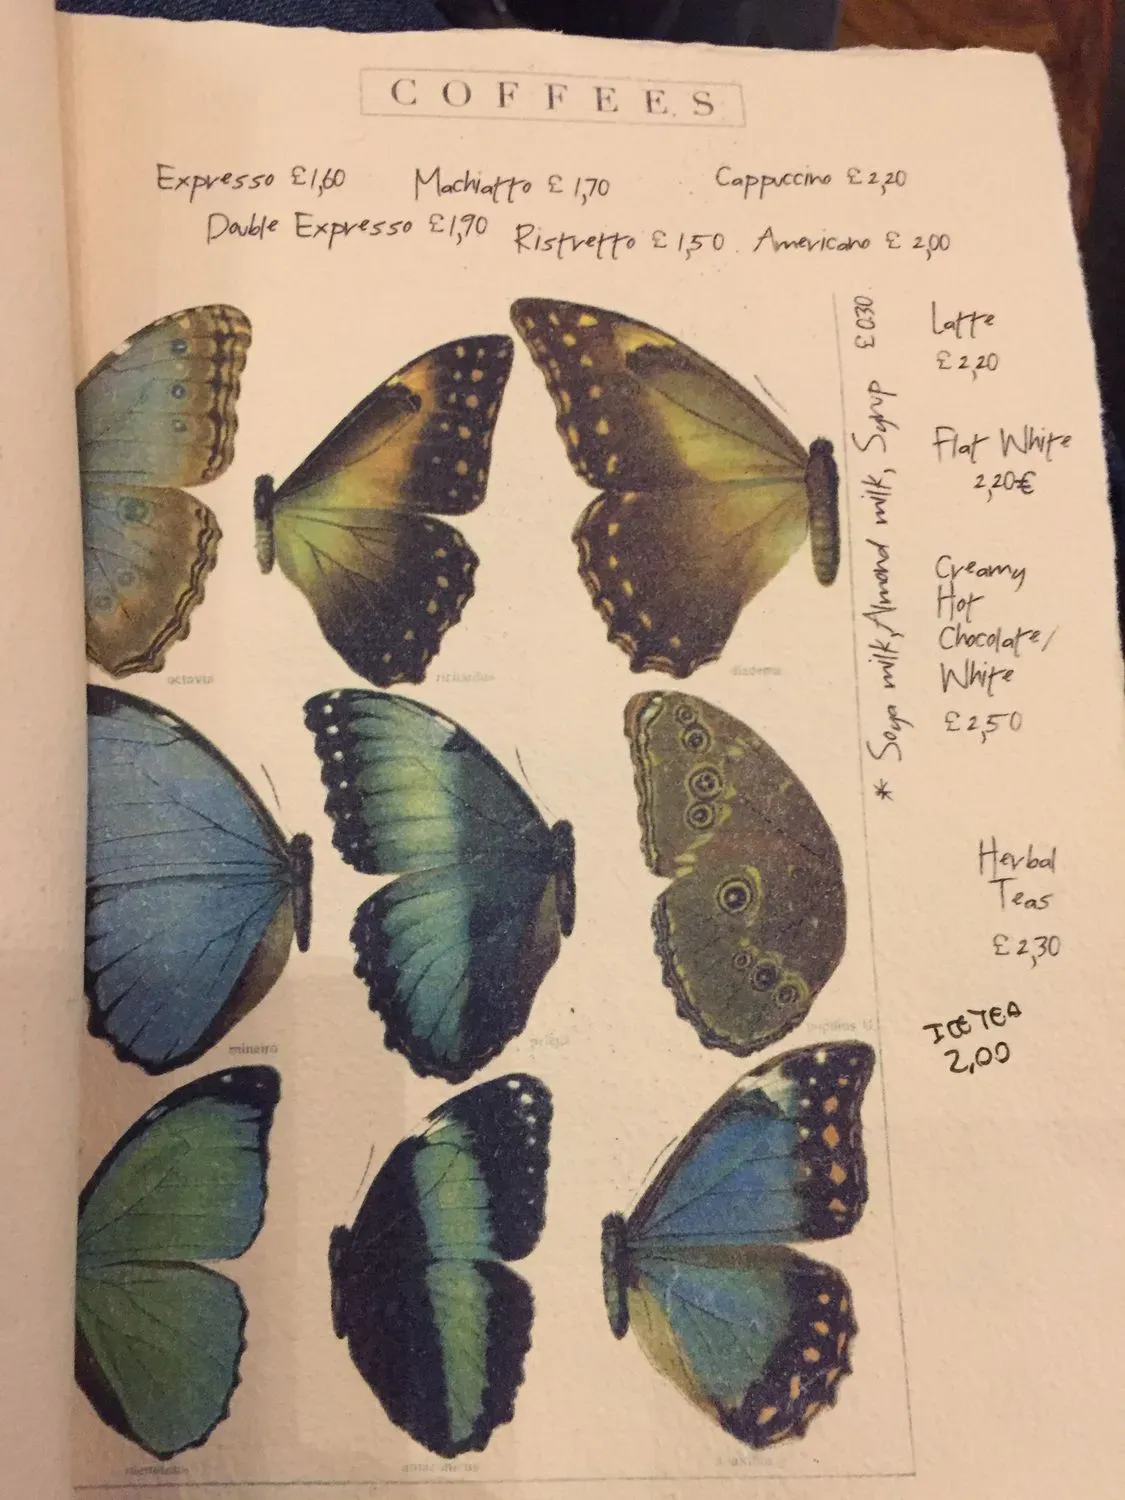 COFFEES
Expresso £1,60 Machiatto £1,70 Cappuccino £2,20
Double Expresso £1,90 Ristretto £1,50 Americano £2,00
* Soya milk, Almond milk, Syrup £0.30
Latte
£2,20
Flat White
2,20€
Creamy
Hot
Chocolate/
White
£2,50
Herbal
Teas
£2,30
ICE TEA
2,00
octavia
richardus
diadema
mineiro